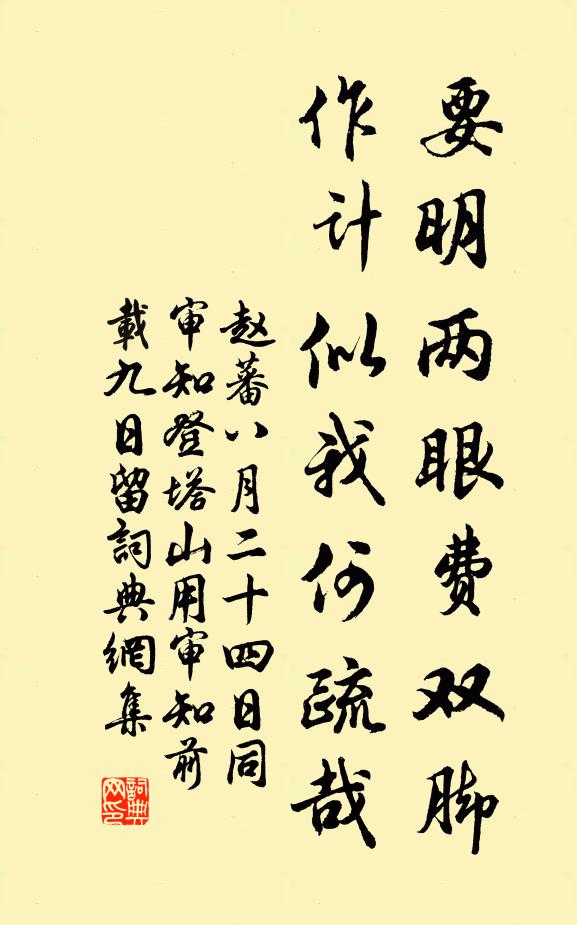 要明两眼费双脚
作计似我何疏哉
赵蕃八月二十四日同
审知登塔山用审知前
載九日留詞典網集
詞典
网印